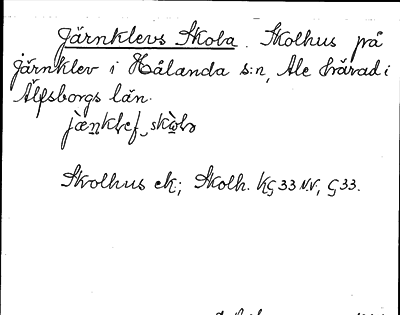 Järnklevs Skola. Skolhus på
Järnklev i Hålanda s:n, Ale härad i
Älfsborgs län.
Skolhus ek; Skolh. KG33 N.V, G33.